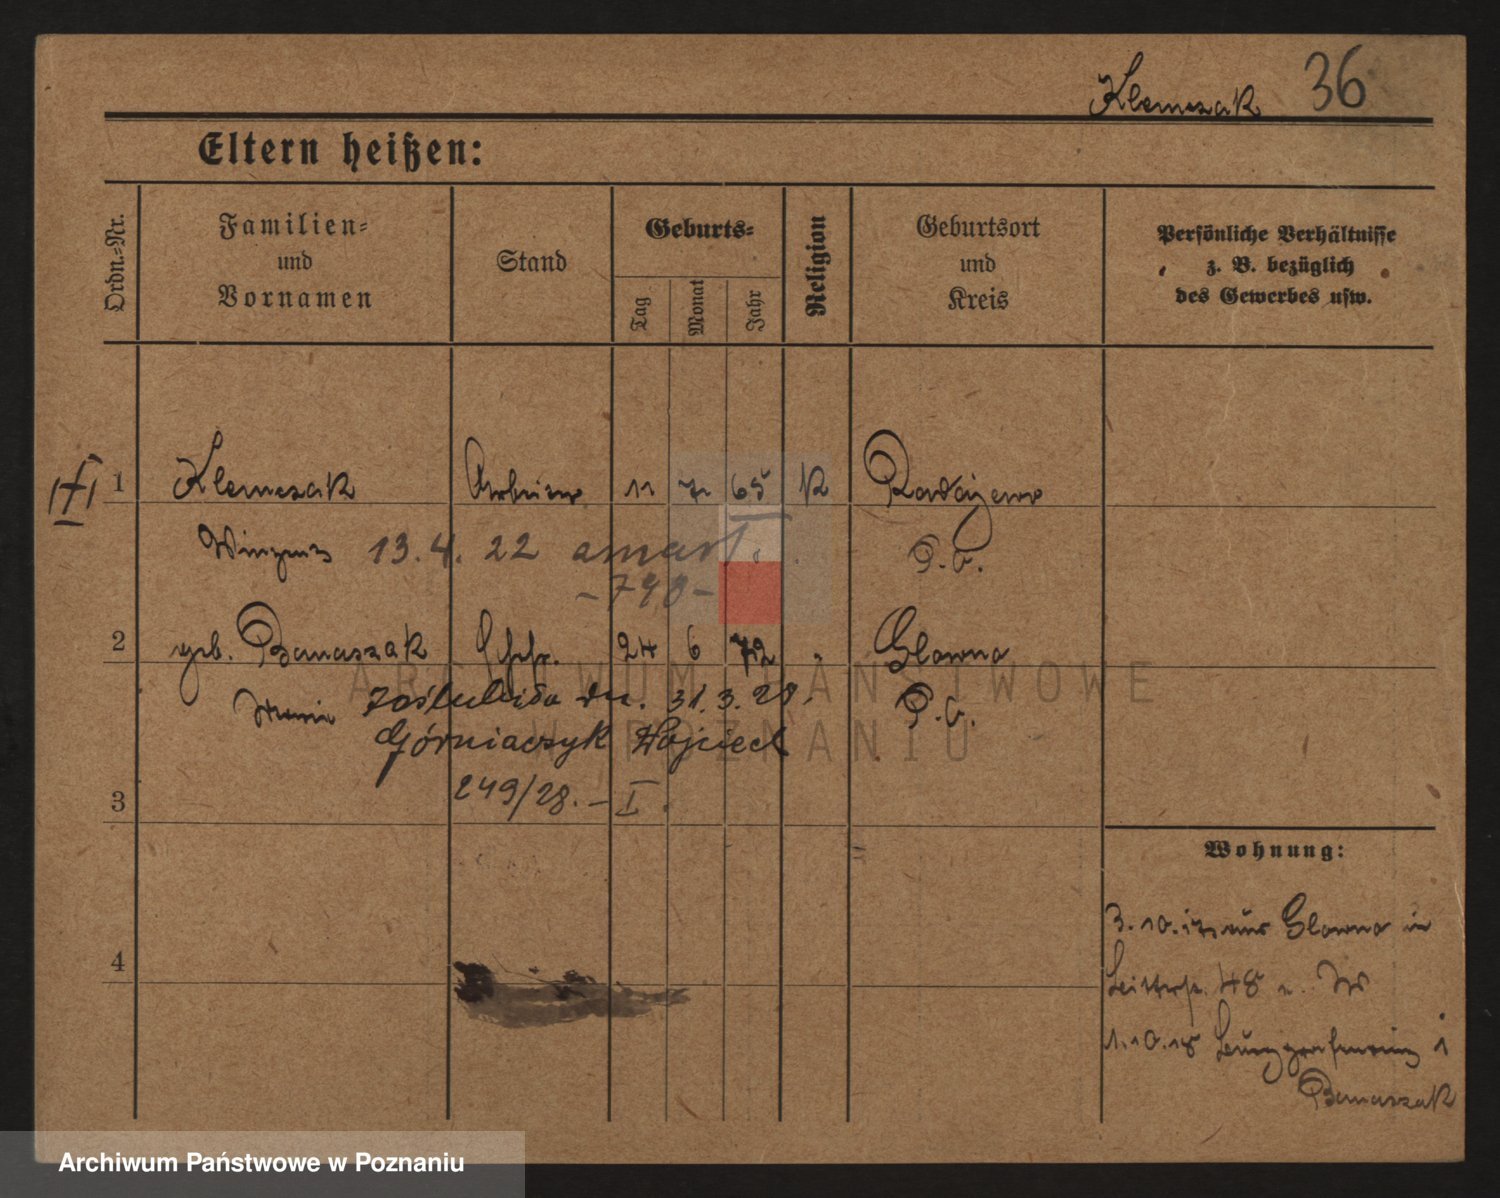 Klemczak 36
Eltern heißen:
Ordn.-Nr.
Familien-
und
Vornamen
Stand
Geburts-
Tag
Monat
Jahr
Religion
Geburtsort
und
Kreis
Persönliche Verhältnisse
z. B. bezüglich
des Gewerbes usw.
1 Klemczak Arbeiter 11 7 65 K Radojewo
Winzent 13.4.22 zmarł. P.O.
-790-
2 geb. Banaszak Ehefr. 24 6 72 " Glowno
Maria zaślubiła dn. 31.3.28. P.O.
Górniaczyk Wojciech
249/28. - I.
3
Wohnung:
3.10.17 aus Glowno in
48
4
1.10.18 Burggrafenring 1
Banaszak
ARCHIWUM PAŃSTWOWE
W POZNANIU
Archiwum Państwowe w Poznaniu